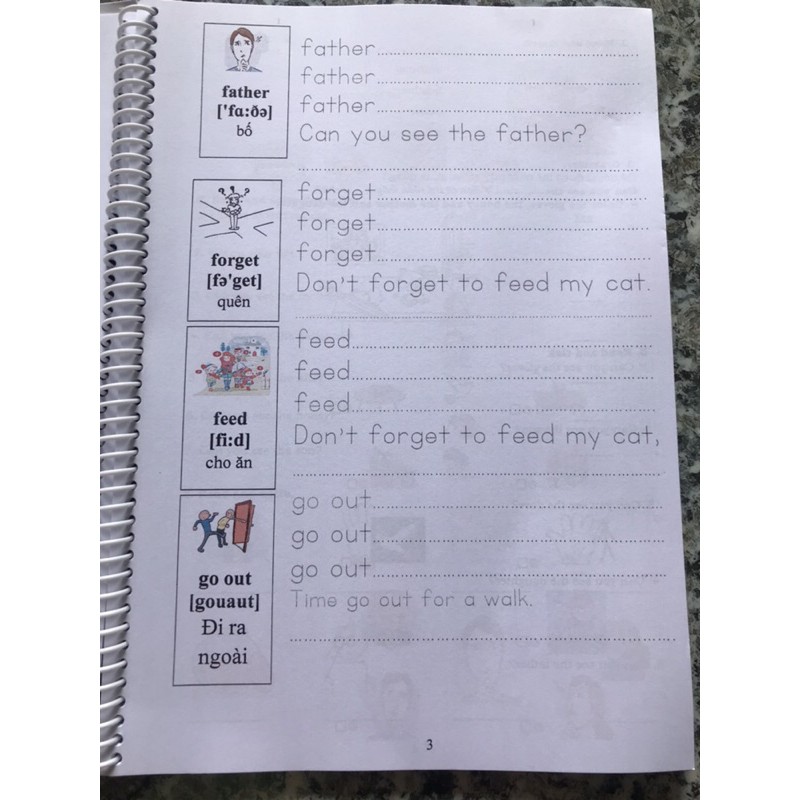 father
['fɑ:ðə]
bố
father
father
father
Can you see the father?
forget
[fə'get]
quên
forget
forget
forget
Don't forget to feed my cat.
feed
[fi:d]
cho ăn
feed
feed
feed
Don't forget to feed my cat,
go out
[gouaut]
Đi ra
ngoài
go out
go out
go out
Time go out for a walk.
3